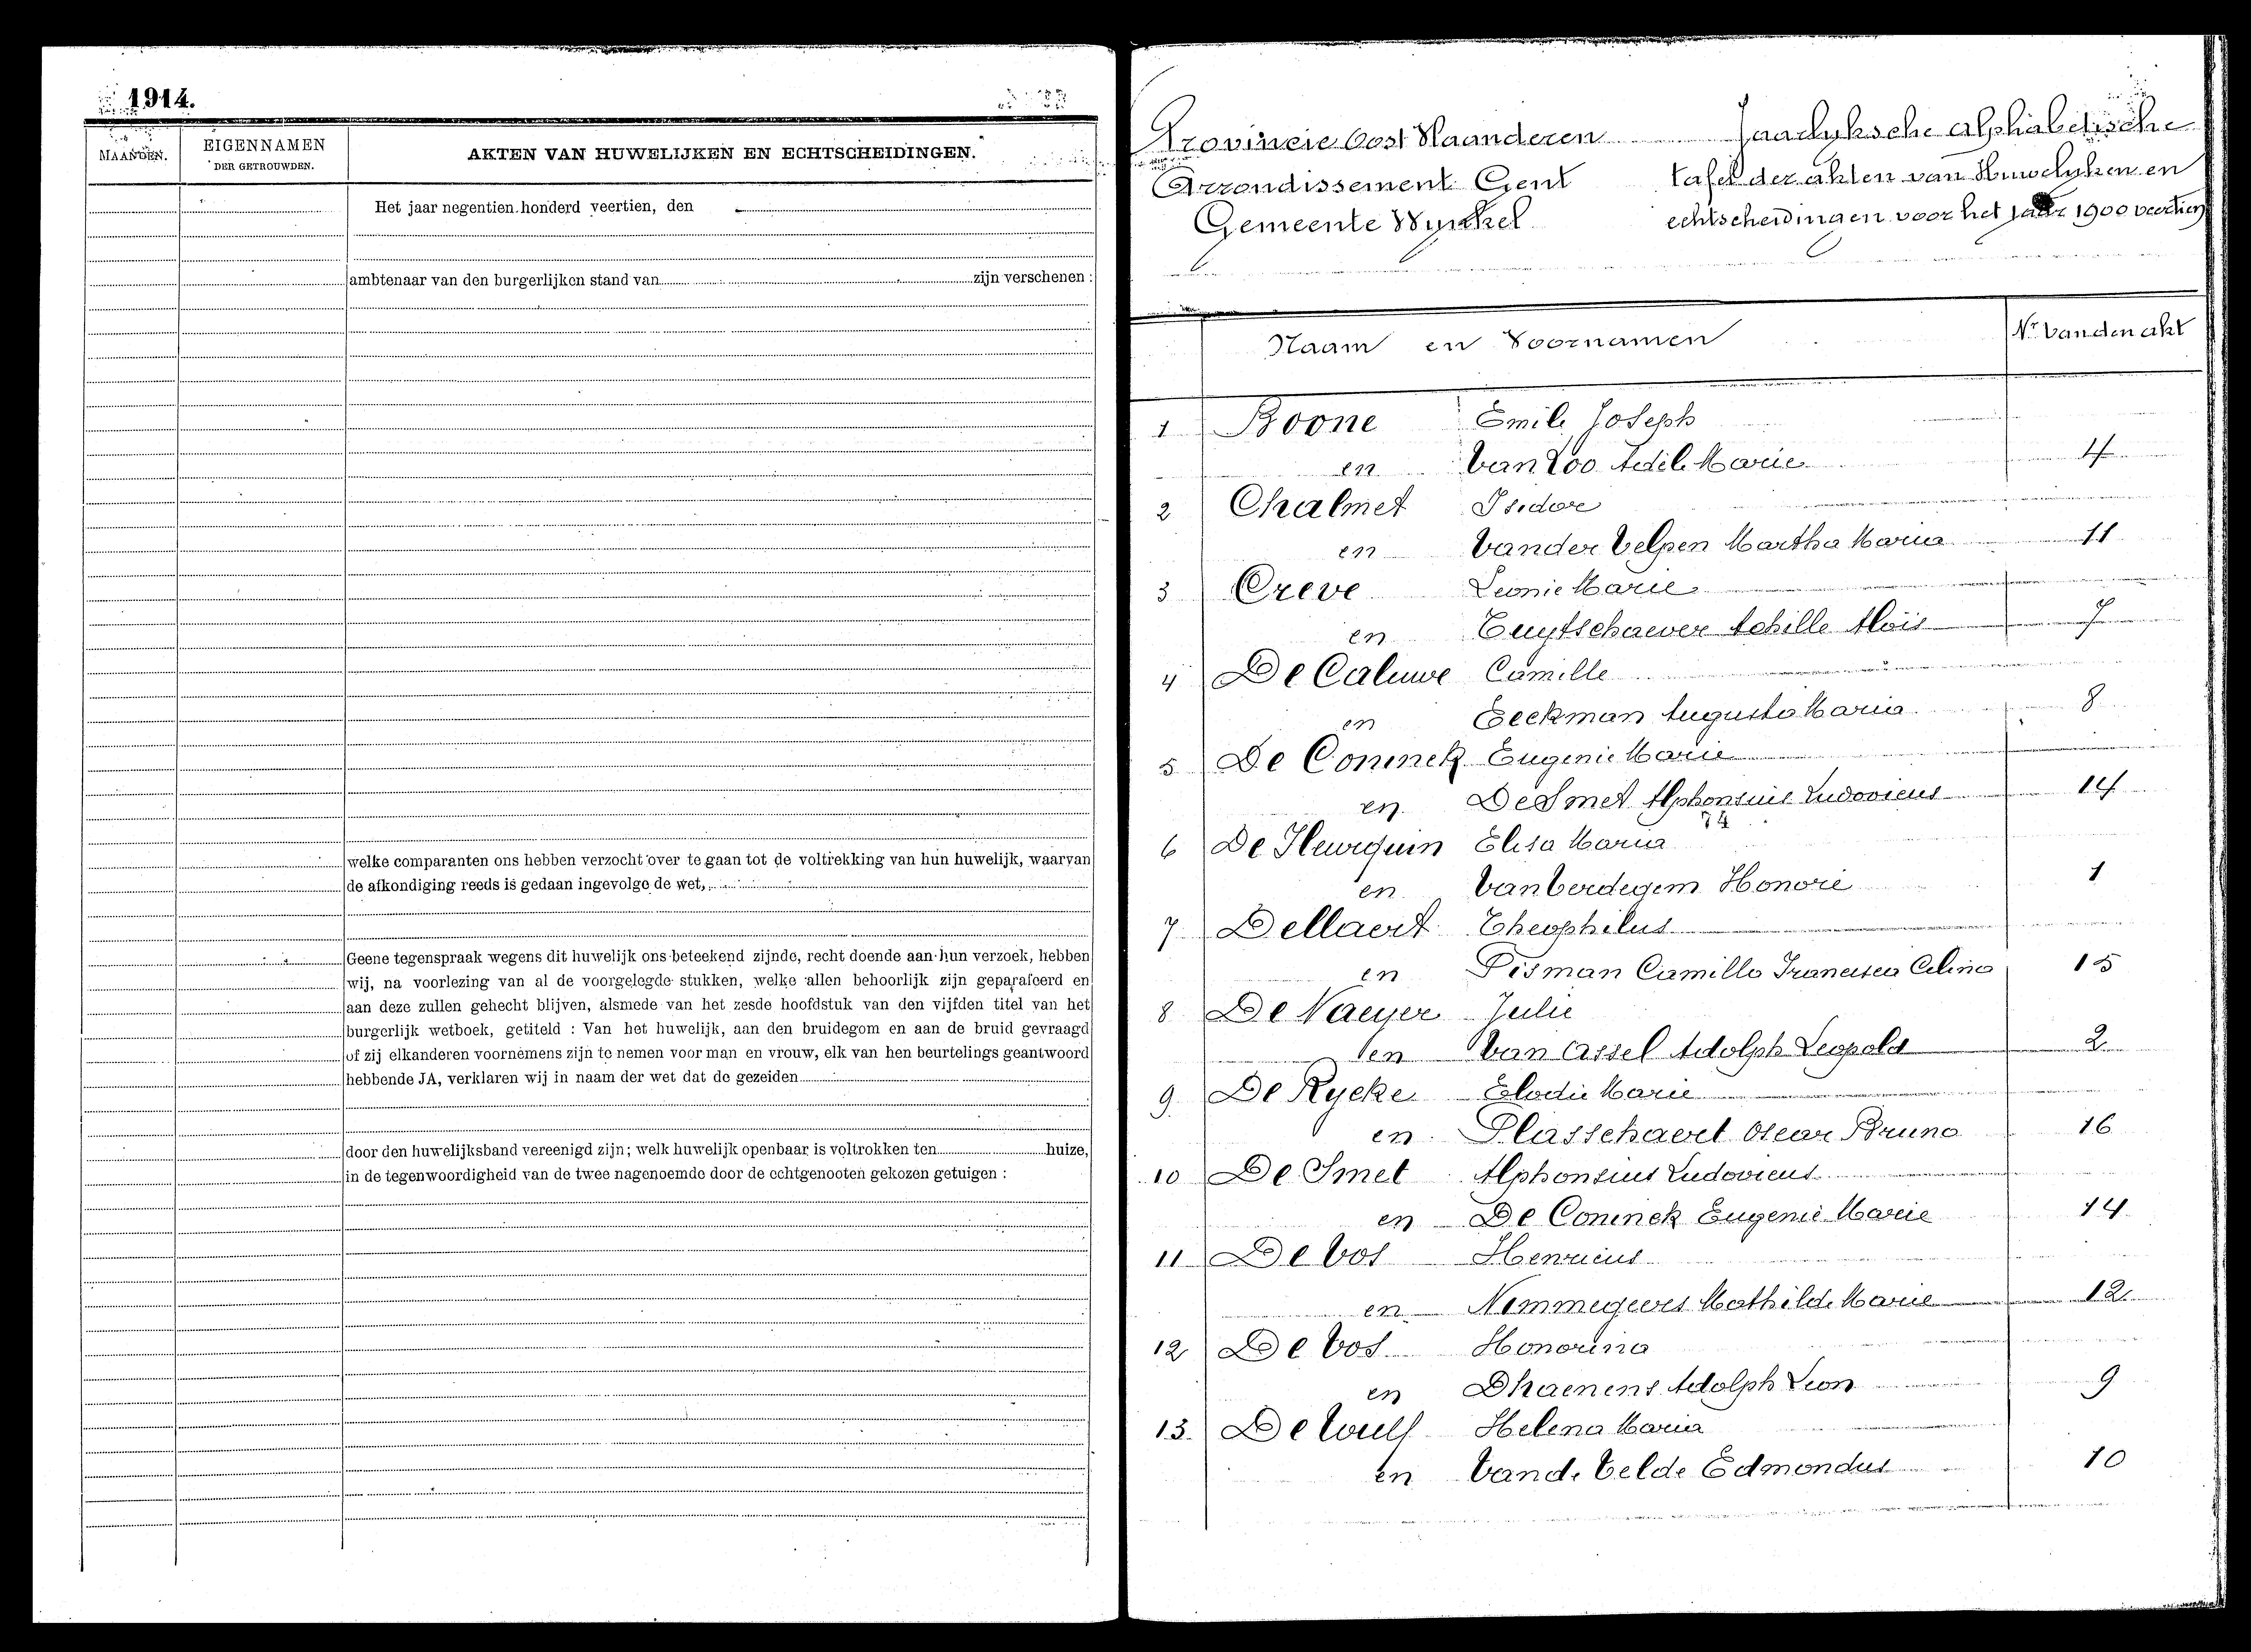 1914.
MAANDEN.
EIGENNAMEN
DER GETROUWDEN.
AKTEN VAN HUWELIJKEN EN ECHTSCHEIDINGEN.
Het jaar negentien honderd veertien, den
ambtenaar van den burgerlijken stand van zijn verschenen :
welke comparanten ons hebben verzocht over te gaan tot de voltrekking van hun huwelijk, waarvan
de afkondiging reeds is gedaan ingevolge de wet,
Geene tegenspraak wegens dit huwelijk ons beteekend zijnde, recht doende aan hun verzoek, hebben
wij, na voorlezing van al de voorgelegde stukken, welke allen behoorlijk zijn geparafeerd en
aan deze zullen gehecht blijven, alsmede van het zesde hoofdstuk van den vijfden titel van het
burgerlijk wetboek, getiteld : Van het huwelijk, aan den bruidegom en aan de bruid gevraagd
of zij elkanderen voornemens zijn te nemen voor man en vrouw, elk van hen beurtelings geantwoord
hebbende JA, verklaren wij in naam der wet dat de gezeiden
door den huwelijksband vereenigd zijn; welk huwelijk openbaar is voltrokken ten huize,
in de tegenwoordigheid van de twee nagenoemde door de echtgenooten gekozen getuigen :
Provincie Oost Vlaanderen
Arrondissement Gent
Gemeente Wynkel
Jaarlyksche Alphabetische
tafel der akten van Huwelyken en
echtscheidingen voor het jaar 1900 veertien
Naam en Voornamen Nr. van den akt
1 Boone Emile Joseph
en Van Loo Adile Marie 4
2 Chalmet Isidor
en Vander Velpen Martha Maria 11
3 Creve Leonie Marie
en Tuytschaever Achille Aloïs 7
4 De Caluwe Camille
en Eeckman Augusta Maria 8
5 De Coninck Eugenie Marie
en De Smet Alphonsius Ludovicus 14
74
6 De Heurquin Elisa Maria
en Van Verdegem Honoré 1
7 Dellaert Theophilus
en Pisman Camilla Francisca Celina 15
8 De Naeyer Julie
en Van Assel Adolph Leopold 2
9 De Rycke Elodie Marie
en Plasschaert Oscar Bruno 16
10 De Smet Alphonsius Ludovicus
en De Coninck Eugenie Marie 14
11 De Vos Henricus
en Nemmegeers Mathilde Marie 12
12 De Vos Honorina
en Dhaenens Adolph Leon 9
13 De Wulf Helena Maria
en Van de Velde Edmondus 10